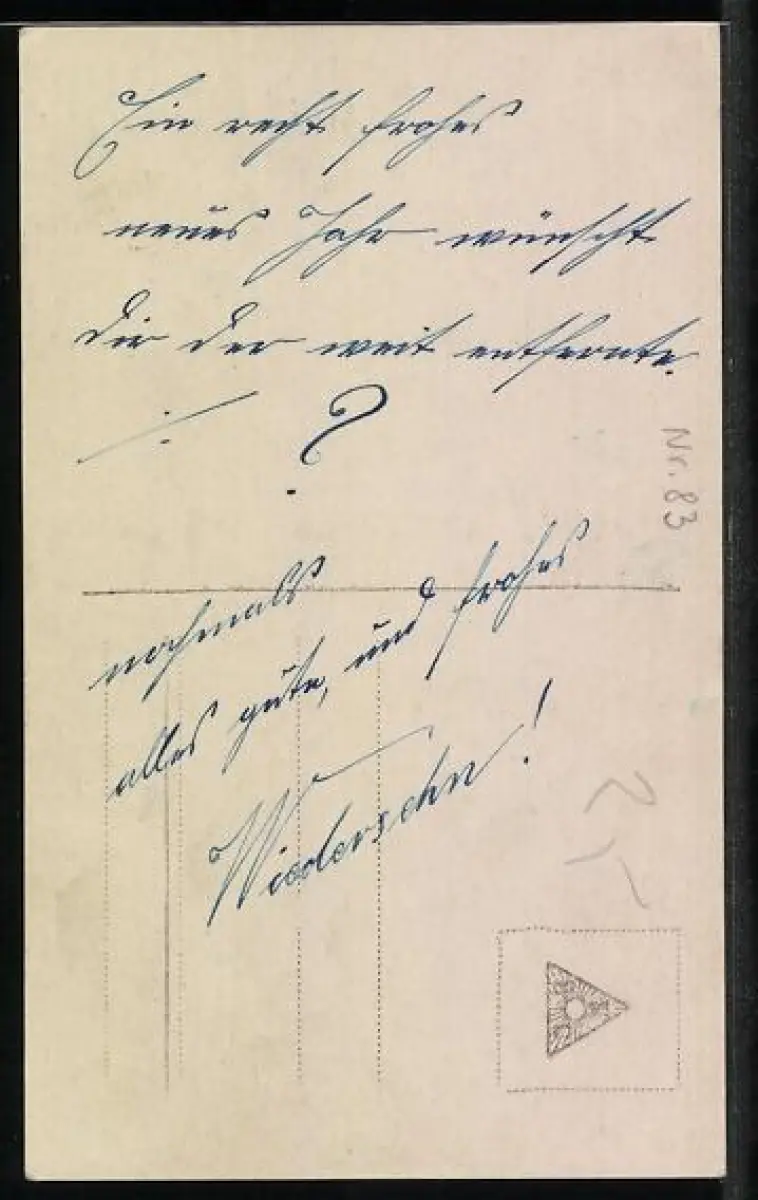 Ein recht frohes
neues Jahr wünscht
Dir der weit entfernte.
?
Nr. 83
nochmals
alles gute, und frohes
Wiedersehn!
2,-